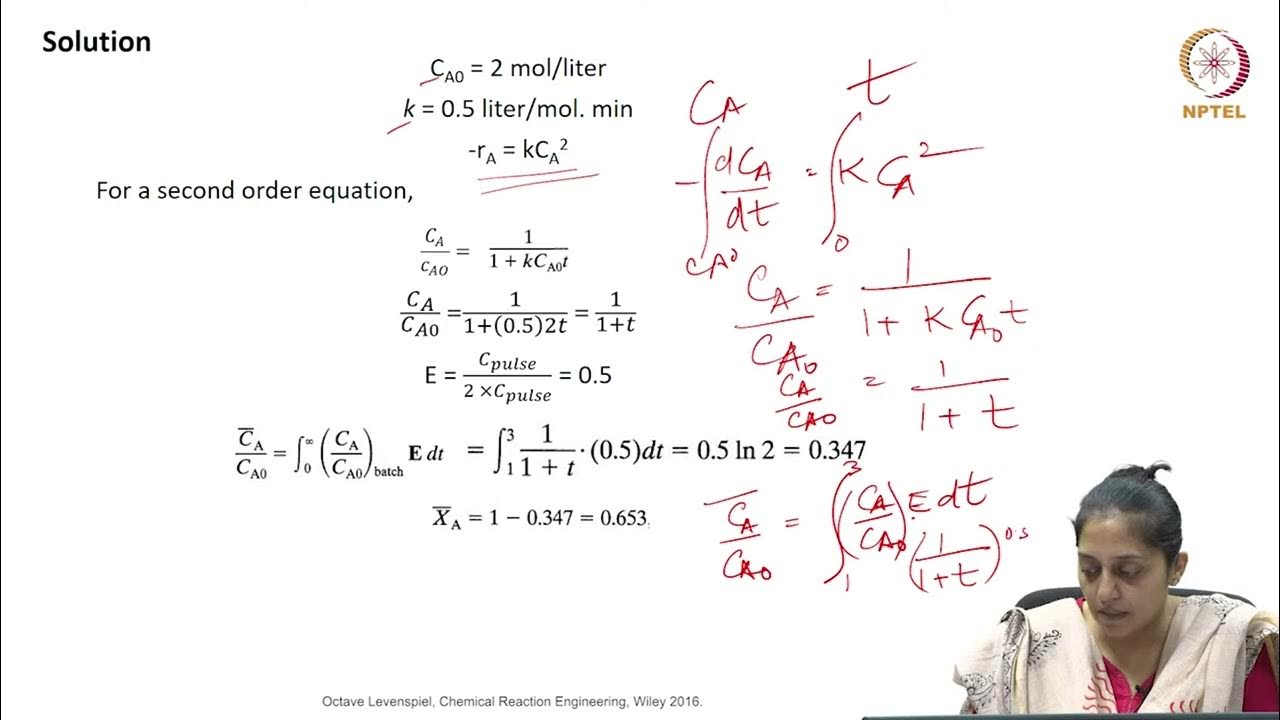 Solution
C_A0 = 2 mol/liter
k = 0.5 liter/mol. min
-r_A = kC_A²
For a second order equation,
C_A/C_AO = 1/(1 + kC_A0t)
C_A/C_A0 = 1/(1+(0.5)2t) = 1/(1+t)
E = C_pulse/(2 × C_pulse) = 0.5
C̅_A/C_A0 = ∫₀^∞ (C_A/C_A0)_batch E dt = ∫₁³ 1/(1 + t) · (0.5)dt = 0.5 ln 2 = 0.347
X̅_A = 1 − 0.347 = 0.653
NPTEL
C_A t
-∫_CA0 dC_A/dt = ∫_0 K C_A²
C_A/C_A0 = 1/(1 + K C_A0 t)
C_A/C_A0 = 1/(1 + t)
C̅_A/C_A0 = ∫₁³ (C_A/C_A0) E dt
(1/(1+t)) 0.5
Octave Levenspiel, Chemical Reaction Engineering, Wiley 2016.